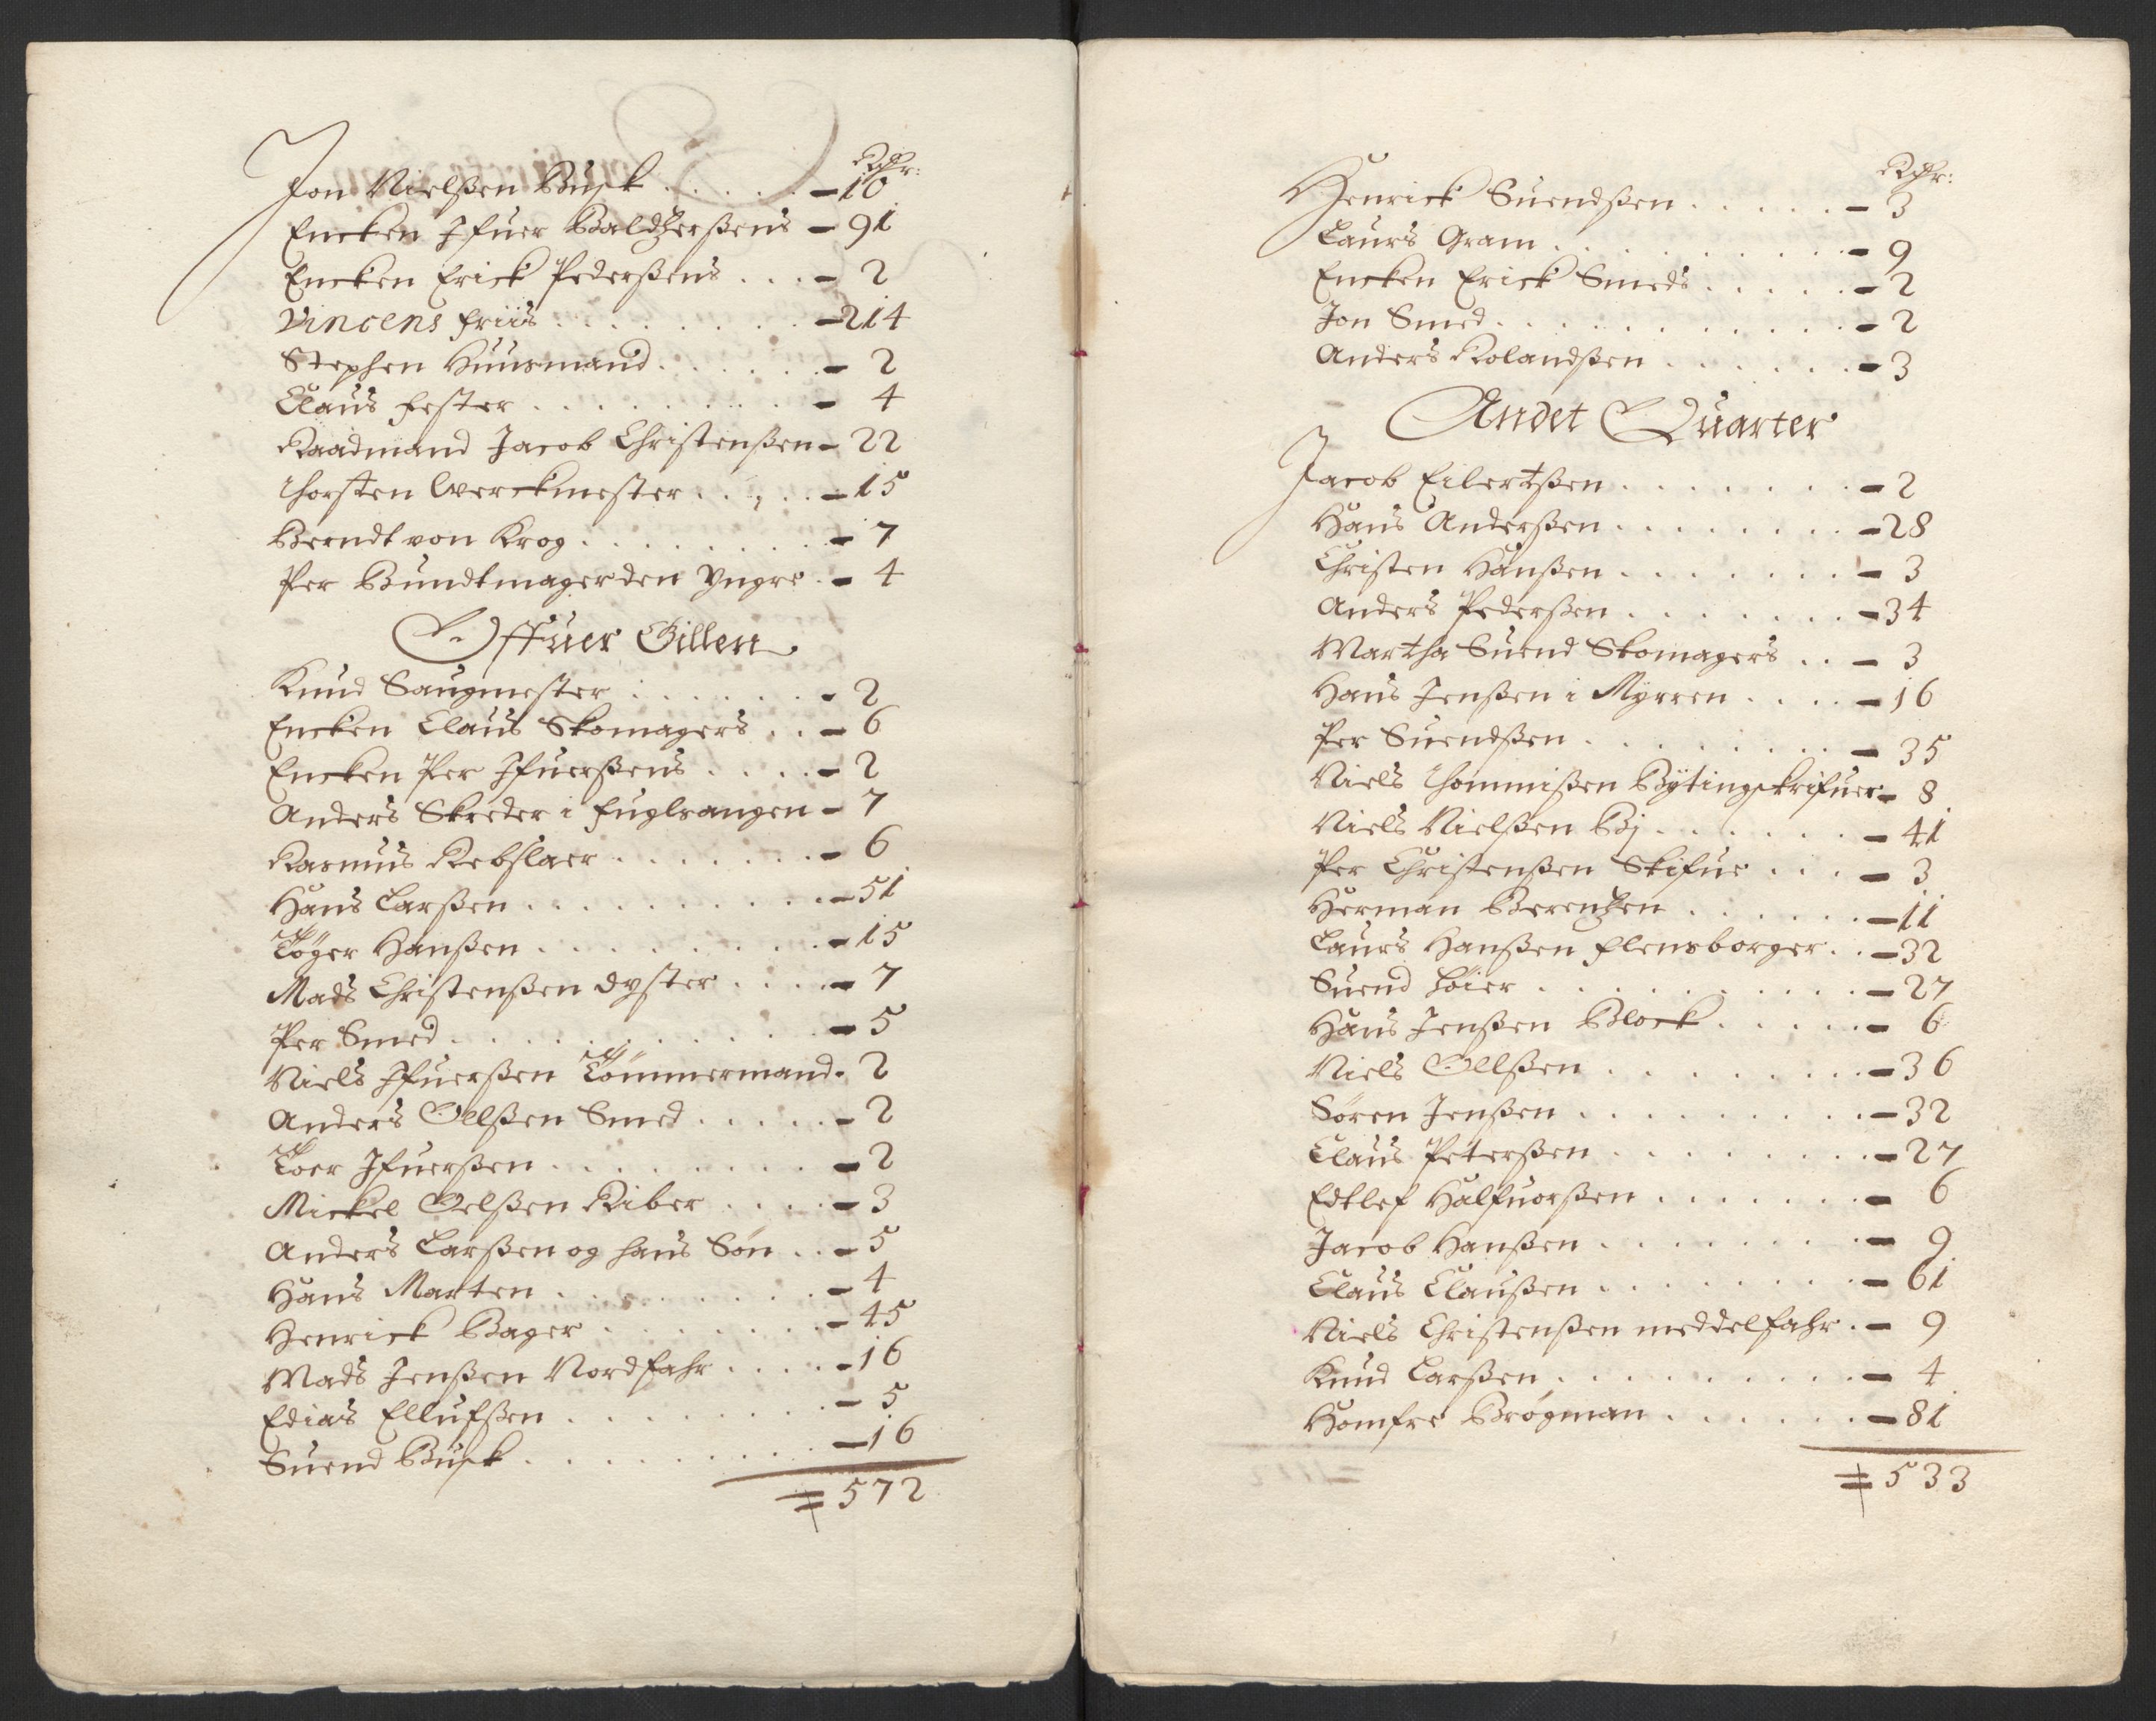 Rdr:
Jon Nielßen Busk - 10
Encken Ifuer Baldtzerßens - 91
Encken Erick Pederßens - 2
Vincens friis - 214
Stephen Huusmand - 2
Claus fester - 4
Raadmand Jacob Christenßen - 22
Thorsten Werckmester - 15
Berndt von Krog - 7
Per Bundtmager den Yngre - 4
Offuer Gillen
Knud Saugmester - 2
Encken Claus Skomagers - 6
Encken Per Ifuerßens - 2
Anders Skreder i fuglsangen - 7
Rasmus Rebslaer - 6
Hans Larßen - 51
Töger Hanßen - 15
Mads Christenßen dyster - 7
Per Smed - 5
Niels Ifuerßen Tömmermand - 2
Anders Ollßen Smed - 2
Toer Ifuerßen - 2
Mickel Oelßen Riber - 3
Anders Larßen og hans Søn - 5
Hans Marten - 4
Henrick Bager - 45
Mads Jenßen Nordfahr - 16
Edias Ellufßen - 5
Suend Busk - 16
= 572
Rdr:
Henrick Suendßen - 3
Laurs Gram - 9
Encken Erick Smeds - 2
Jon Smed - 2
Anders Rolandßen - 3
Andet Quarter
Jacob Eilertßen - 2
Hans Anderßen - 28
Christen Hanßen - 3
Anders Pederßen - 34
Martha Suend Skomagers - 3
Hans Jenßen i Myrren - 16
Per Suendßen - 35
Niels Thommißen Bytingskrifuer - 8
Niels Nielßen Bj - 41
Per Christenßen Skifue - 3
Herman Berentzen - 11
Laurs Hanßen flensborger - 32
Suend Løier - 27
Hans Jenßen Block - 6
Niels Ollßen - 36
Sören Jenßen - 32
Claus Peterßen - 27
Edtlef Halfuorßen - 6
Jacob Hanßen - 9
Claus Claußen - 61
Niels Christenßen meddelfahr - 9
Knud Larßen - 4
Homfre Brøgman - 81
= 533